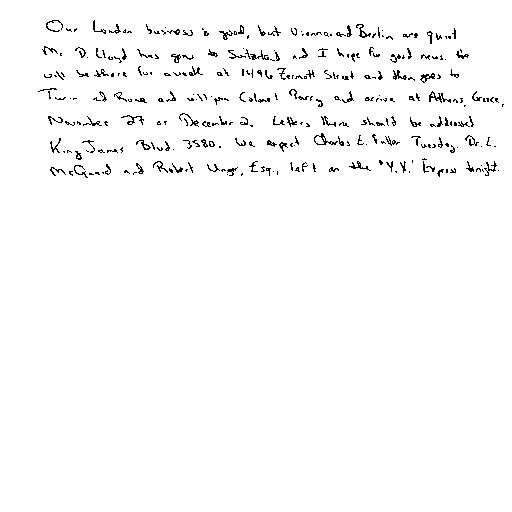 Our London business is good, but Vienna and Berlin are quiet
Mr. D. Lloyd has gone to Switzerland and I hope for good news. He
will be there for a week at 1496 Zermott Street and then goes to
Turin and Rome and will join Colonel Parry and arrive at Athens, Greece,
November 27 or December 2. Letters there should be addressed
King James Blvd. 3580. We expect Charles E. Fuller Tuesday. Dr. L.
McQuaid and Robert Unger, Esq., left on the "Y.X." Express tonight.